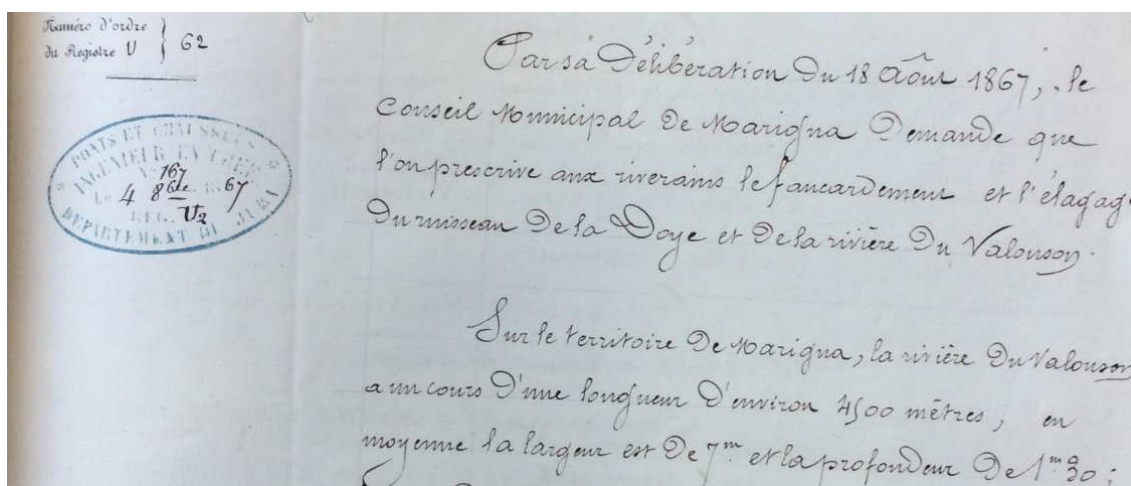 Numéro d'ordre
du Registre U } 62
PONTS ET CHAUSSÉES
INGÉNIEUR EN CHEF
N° 167
Le 4 8bre 1867
REG. U2
DÉPARTEMENT DU JURA
Par sa Délibération Du 18 Août 1867, le
Conseil Municipal De Marigna Demande que
l'on prescrive aux riverains le faucardement et l'élagage
Du ruisseau De la Doye et De la rivière Du Valouson.
Sur le territoire De Marigna, la rivière Du Valouson
a un cours D'une longueur D'environ 4500 mètres, en
moyenne la largeur est De 7m et la profondeur De 1m 20;